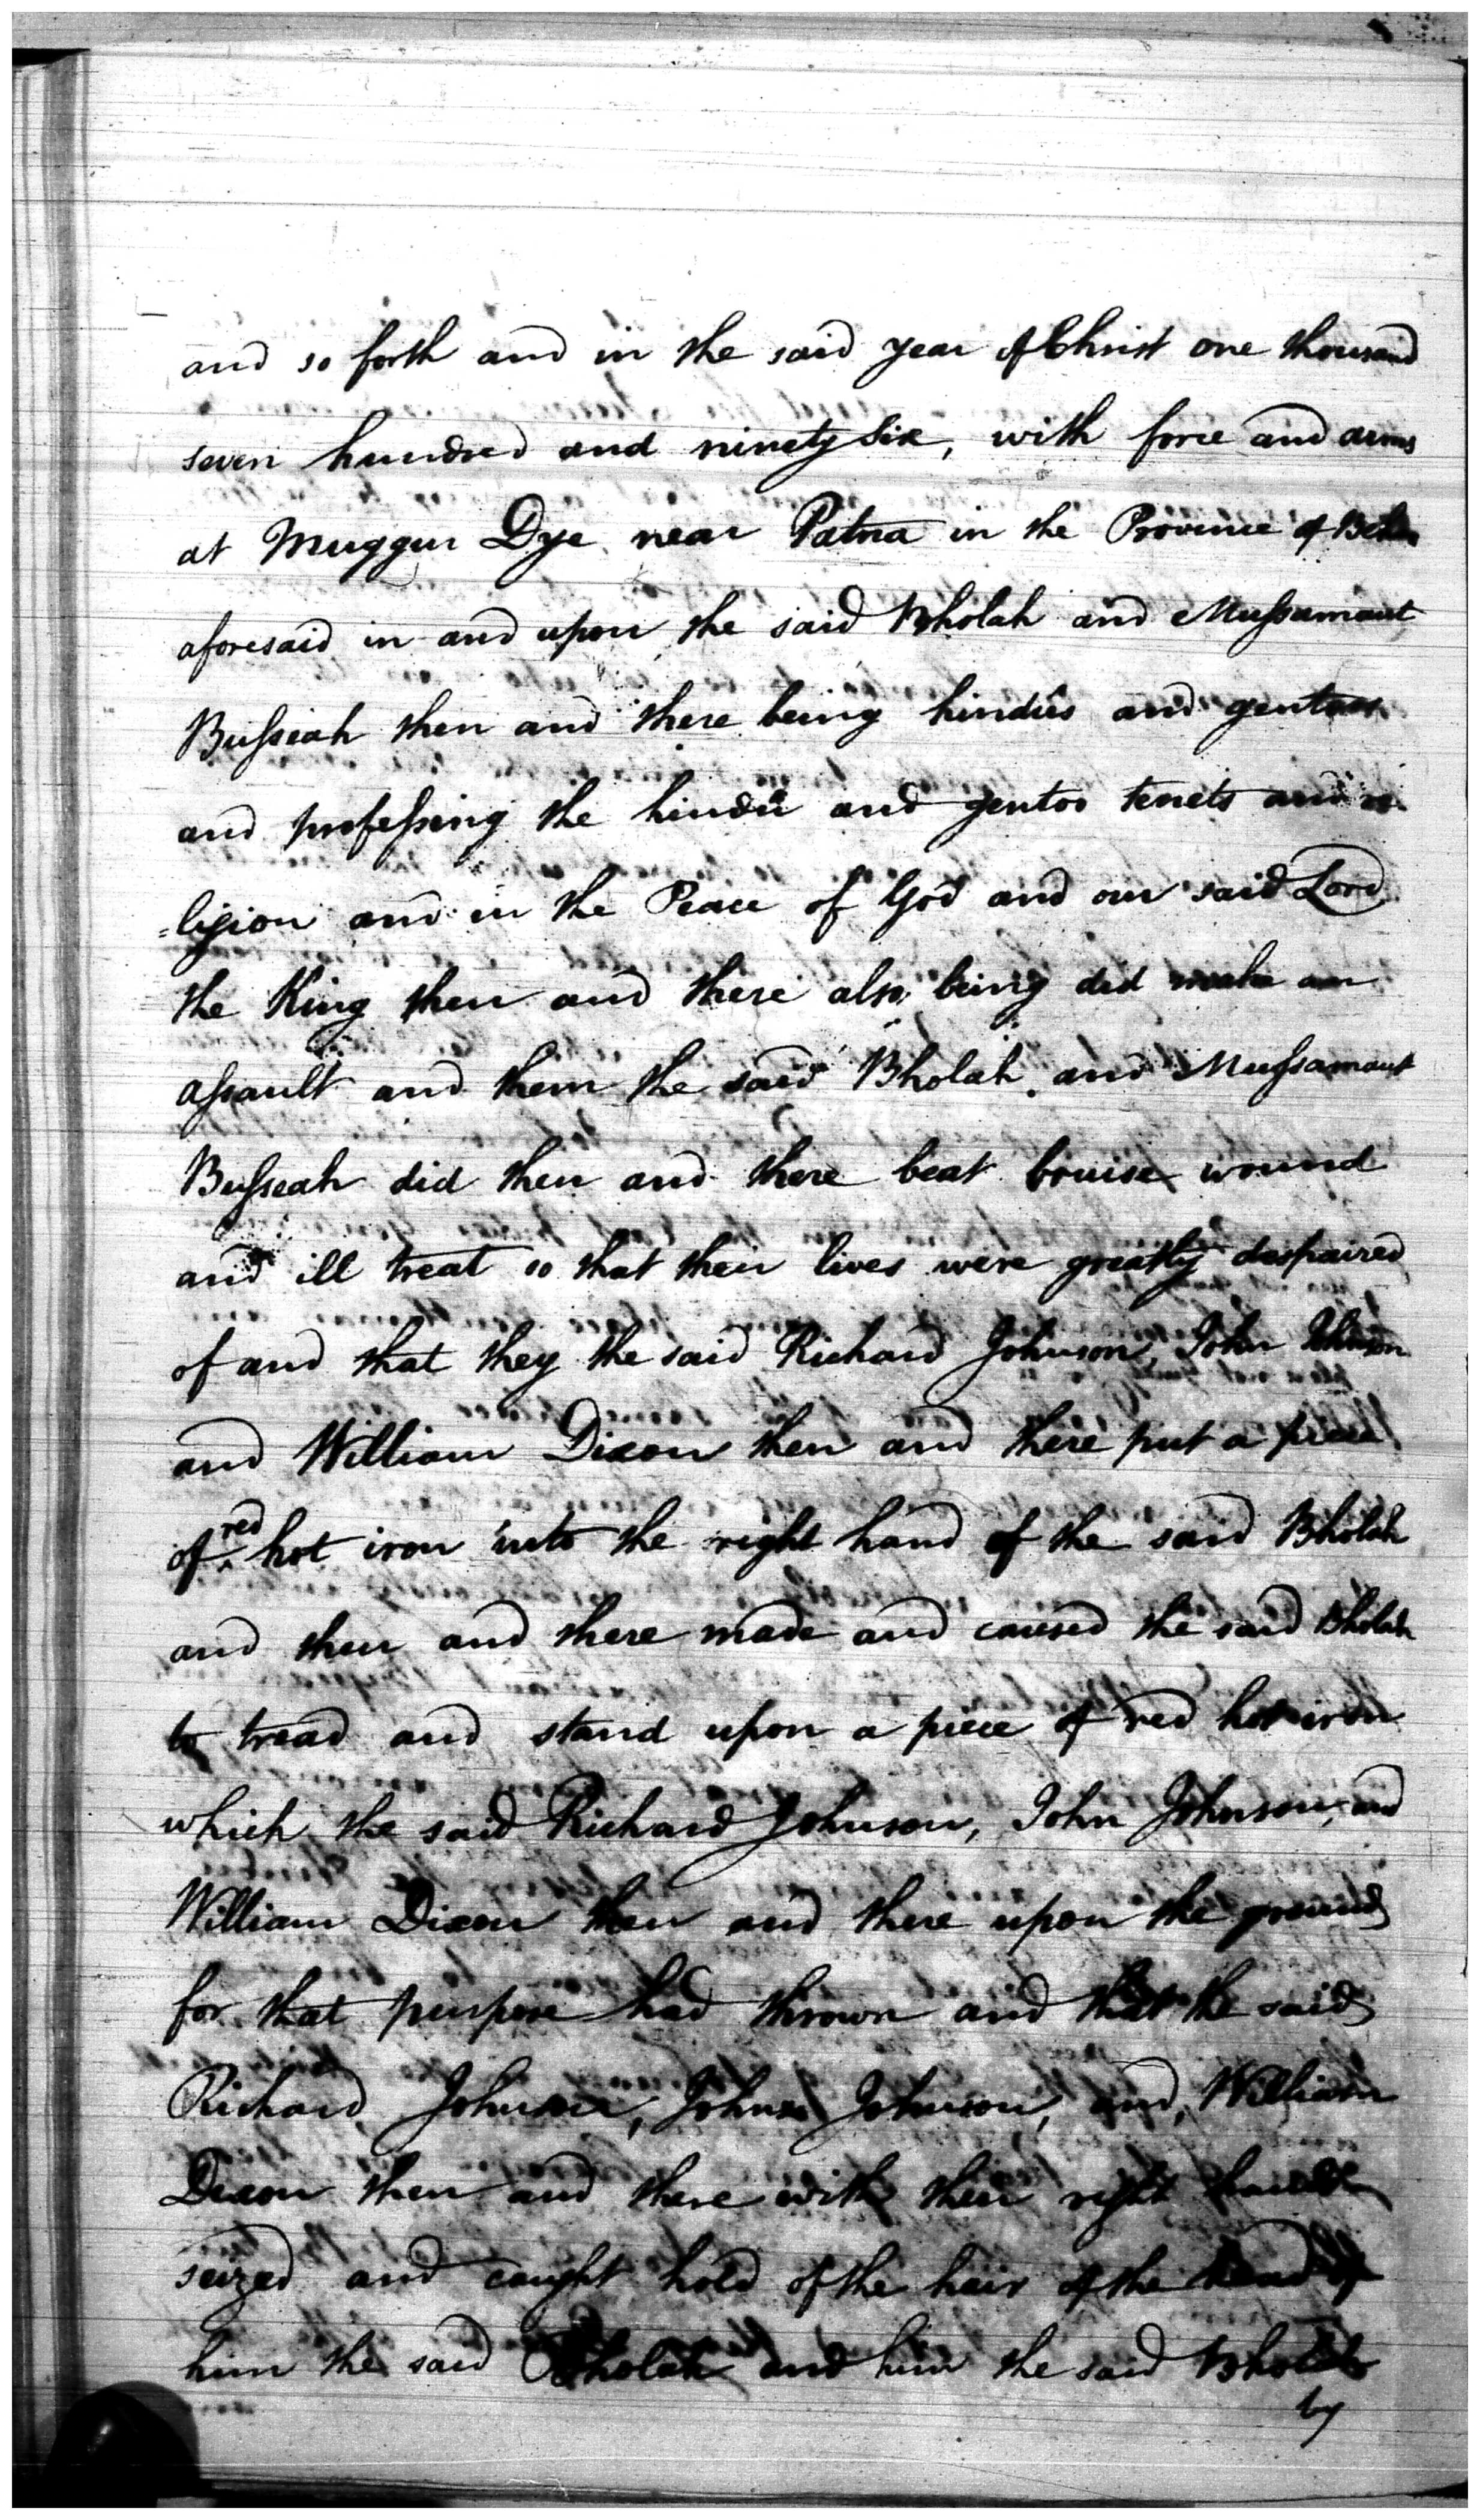 and so forth and in the said year of Christ one thousand
seven hundred and ninety six, with force and arms
at Muggur Dye near Patna in the Province of Behar
aforesaid in and upon the said Bholah and Mussamaut
Busseah then and there being hindûs and gentoos
and professing the hindû and gentoo tenets and re
=ligion and in the Peace of God and our said Lord
the King then and there also being did make an
assault and them the said Bholah and Mussamaut
Busseah did then and there beat bruise wound
and ill treat so that their lives were greatly despaired
of and that they the said Richard Johnson, John Johnson
and William Dixon then and there put a piece
of red hot iron into the right hand of the said Bholah
and then and there made and caused the said Bholah
to tread and stand upon a piece of red hot iron
which the said Richard Johnson, John Johnson, and
William Dixon then and there upon the ground
for that purpose had thrown and that the said
Richard Johnson, John Johnson, and, William
Dixon then and there with their right hands
seized and caught hold of the hair of the head of
him the said Bholah and him the said Bholah
by